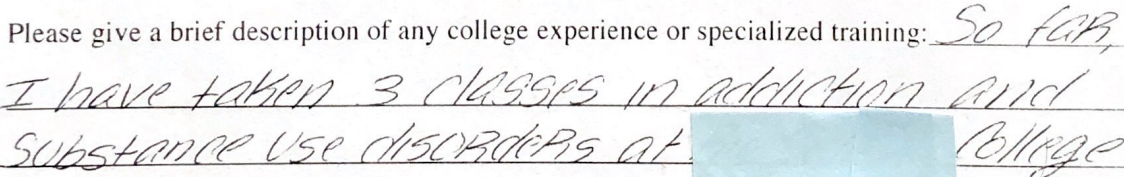 Please give a brief description of any college experience or specialized training: So far,
I have taken 3 classes in addiction and
Substance use disorders at College